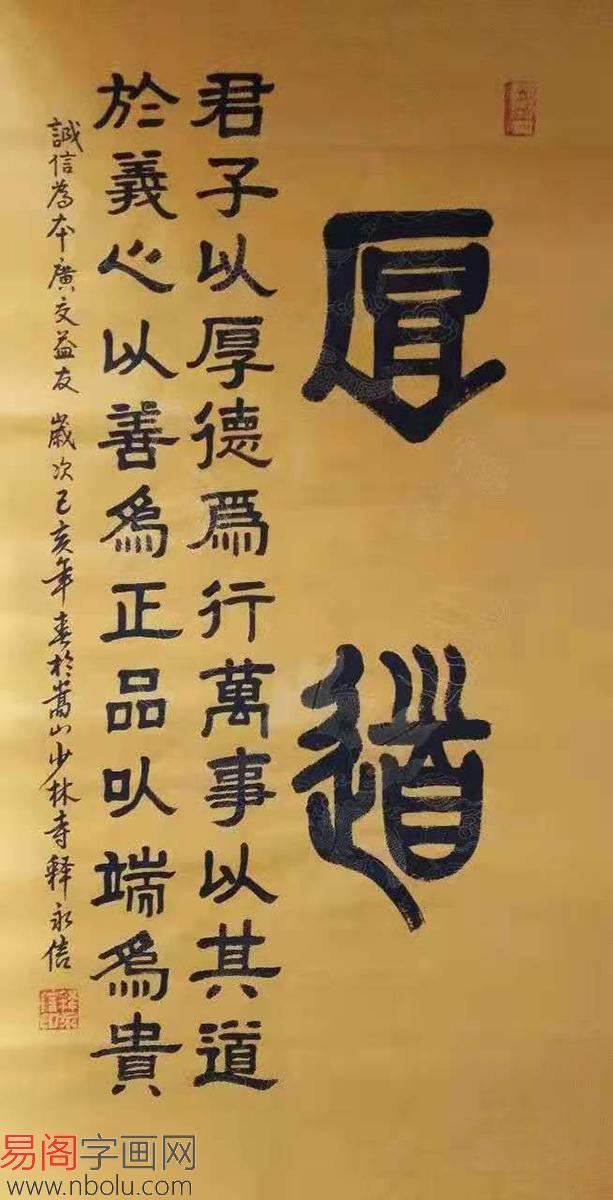 厚道
君子以厚德爲行萬事以其道
於義心以善爲正品以端爲貴
誠信為本廣交益友 歲次己亥年春於嵩山少林寺釋永信
易阁字画网
www.nbolu.com